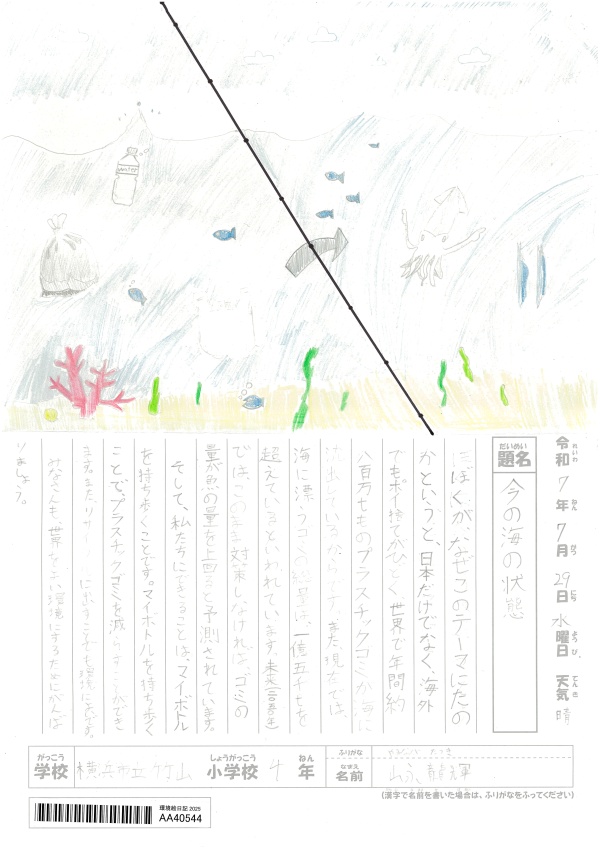 令和 7年 7月 29日 水曜日 天気 晴
れいわ ねん がつ にち ようび てんき
だいめい
題名 今の海の状態
ぼくが、なぜこのテーマにしたの
かというと、日本だけでなく、海外
でもポイ捨てがひどく、世界で年間約
八百万tものプラスチックゴミが海に
流出しているからです。また現在では、
海に漂うゴミの総量は、一億五千万tを
超えているといわれています。未来
では、このまま対策しなければ、ゴミの
量が魚の量を上回ると予測されています。
そして、私たちにできることは、マイボトル
を持ち歩くことです。マイボトルを持ち歩く
ことで、プラスチックゴミを減らすことができ
ます。また、リサイクルに出すことでも環境によいです。
みなさんも、世界をよい環境にするためにがんば
りましょう。
WATER
がっこう しょうがっこう ねん
学校 横浜市立竹山 小学校 4年
ふりがな
なまえ
名前 龍輝
(漢字で名前を書いた場合は、ふりがなをふってください)
環境絵日記 2025
AA40544